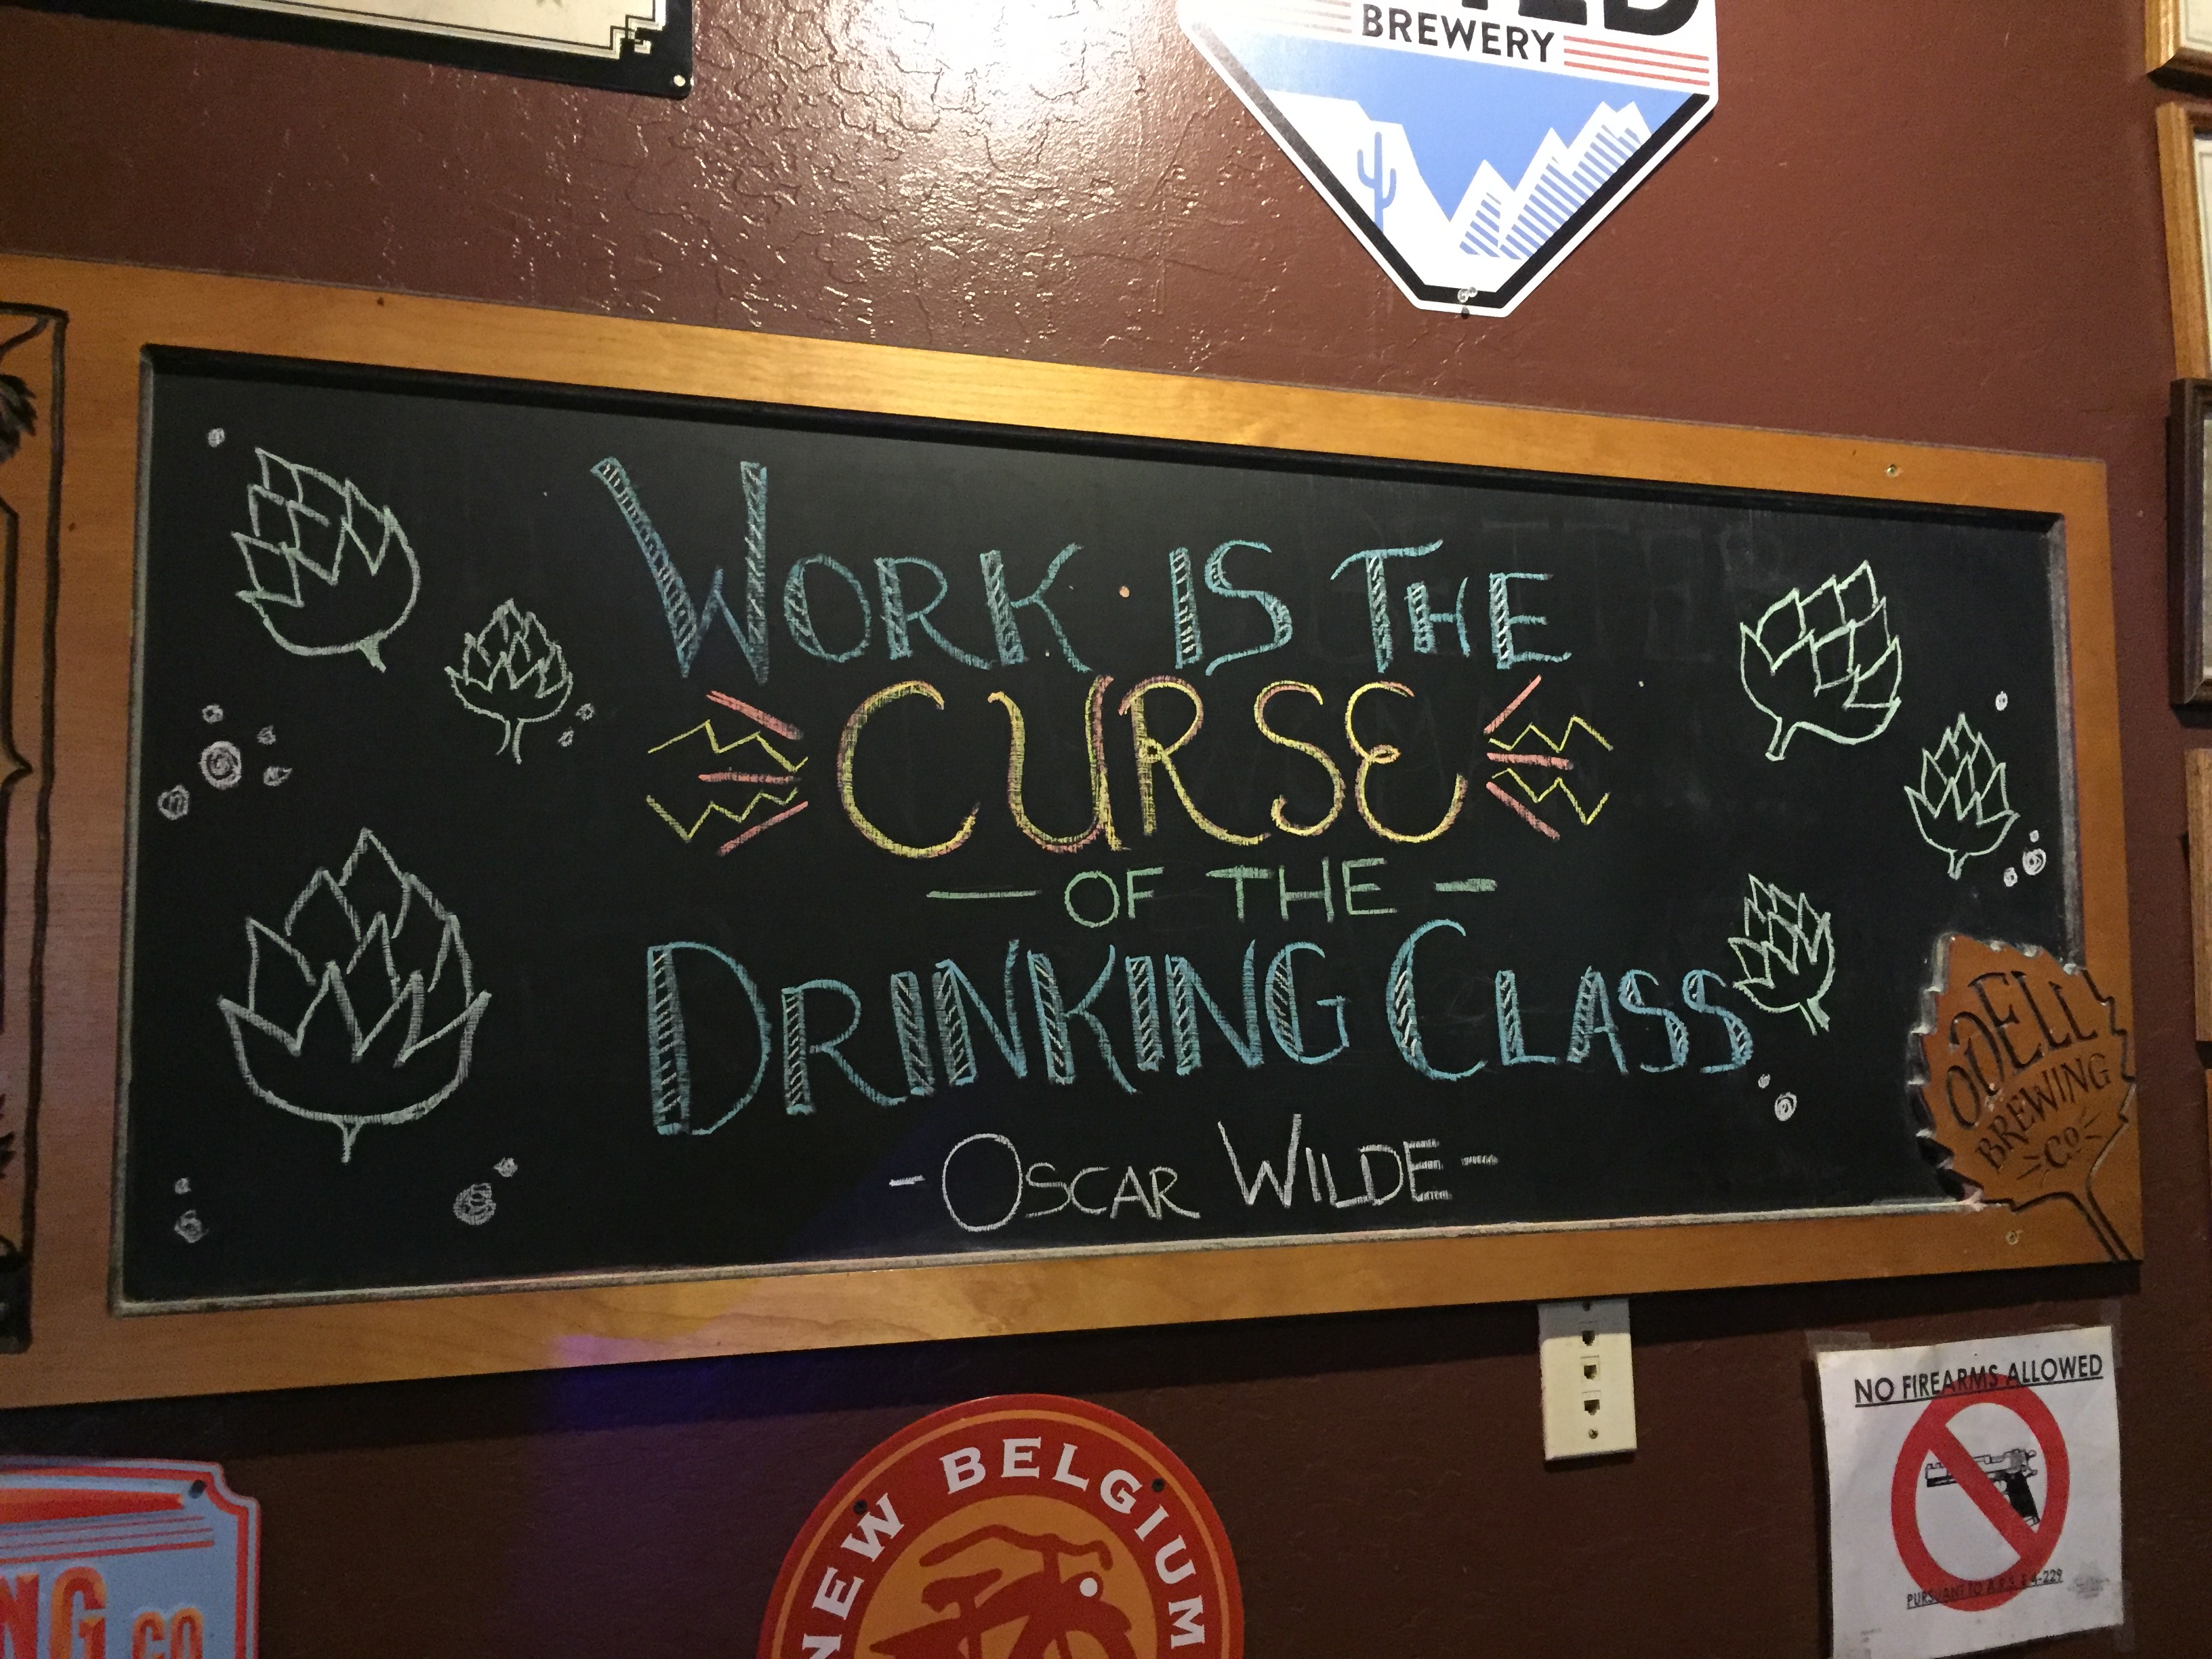 BREWERY
WORK IS THE
CURSE
— OF THE —
DRINKING CLASS
- OSCAR WILDE -
ODELL
BREWING
CO
NO FIREARMS ALLOWED
PURSUANT TO A.R.S. § 4-229
NEW BELGIUM
CO